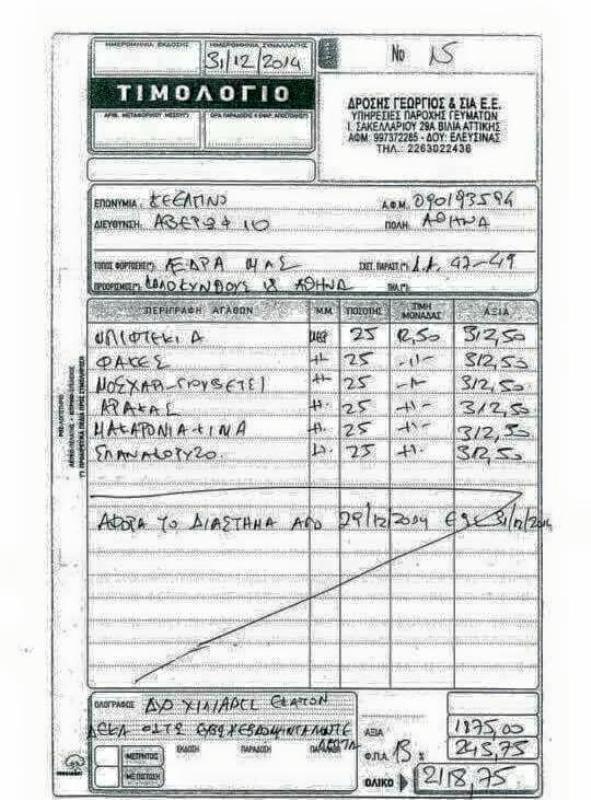 ΗΜΕΡΟΜΗΝΙΑ ΕΚΔΟΣΗΣ ΗΜΕΡΟΜΗΝΙΑ ΣΥΝΑΛΛΑΓΗΣ
31/12/2014
No 15
ΤΙΜΟΛΟΓΙΟ
ΔΡΟΣΗΣ ΓΕΩΡΓΙΟΣ & ΣΙΑ Ε.Ε.
ΥΠΗΡΕΣΙΕΣ ΠΑΡΟΧΗΣ ΓΕΥΜΑΤΩΝ
Ι. ΣΑΚΕΛΛΑΡΙΟΥ 29Α ΒΙΛΙΑ ΑΤΤΙΚΗΣ
ΑΦΜ: 997372285 - ΔΟΥ: ΕΛΕΥΣΙΝΑΣ
ΤΗΛ.: 2263022436
ΕΠΩΝΥΜΙΑ Α.Φ.Μ. 090193594
ΔΙΕΥΘΥΝΣΗ: ΑΒΕΡΩΦ 10 ΠΟΛΗ ΑΘΗΝΑ
ΤΟΠΟΣ ΦΟΡΤΩΣΗΣ(*): ΕΔΡΑ ΜΑΣ ΣΧΕΤ. ΠΑΡΑΣΤ.(*): Δ.Α. 47-49
ΠΡΟΟΡΙΣΜΟΣ(*): 18 ΑΘΗΝΑ
ΠΕΡΙΓΡΑΦΗ ΑΓΑΘΩΝ Μ.Μ. ΠΟΣΟΤΗΣ ΤΙΜΗ ΜΟΝΑΔΑΣ ΑΞΙΑ
ΜΠΙΦΤΕΚΙΑ ΜΕΡ 25 12,50 312,50
ΦΑΚΕΣ -//- 25 -//- 312,50
ΜΟΣΧΑΡΙ-ΓΙΟΥΒΕΤΣΙ -//- 25 -//- 312,50
ΑΡΑΚΑΣ -//- 25 -//- 312,50
ΜΑΚΑΡΟΝΙΑ ΚΙΜΑ -//- 25 -//- 312,50
ΣΠΑΝΑΚΟΡΥΖΟ -//- 25 -//- 312,50
ΑΦΟΡΑ ΤΟ ΔΙΑΣΤΗΜΑ ΑΠΟ 29/12/2014 ΕΩΣ 31/12/2014
ΟΛΟΓΡΑΦΩΣ ΔΥΟ ΧΙΛΙΑΔΕΣ ΕΚΑΤΟΝ
ΔΕΚΑ ΟΚΤΩ ΕΥΡΩ ΚΕΒΔΟΜΗΝΤΑΠΕΝΤΕ
ΛΕΠΤΑ
ΑΞΙΑ 1875,00
Φ.Π.Α. 13 % 243,75
ΕΚΔΟΣΗ ΠΑΡΑΔΟΣΗ
ΜΕΤΡΗΤΟΙΣ
ΜΕ ΠΙΣΤΩΣΗ
ΟΛΙΚΟ 2118,75